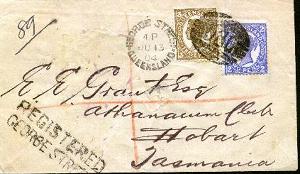 89
GEORGE STREET
4 P
JU 13
04
QUEENSLAND
E. R. Grant Esq
Athenaeum Club
Hobart
Tasmania
REGISTERED
GEORGE STR